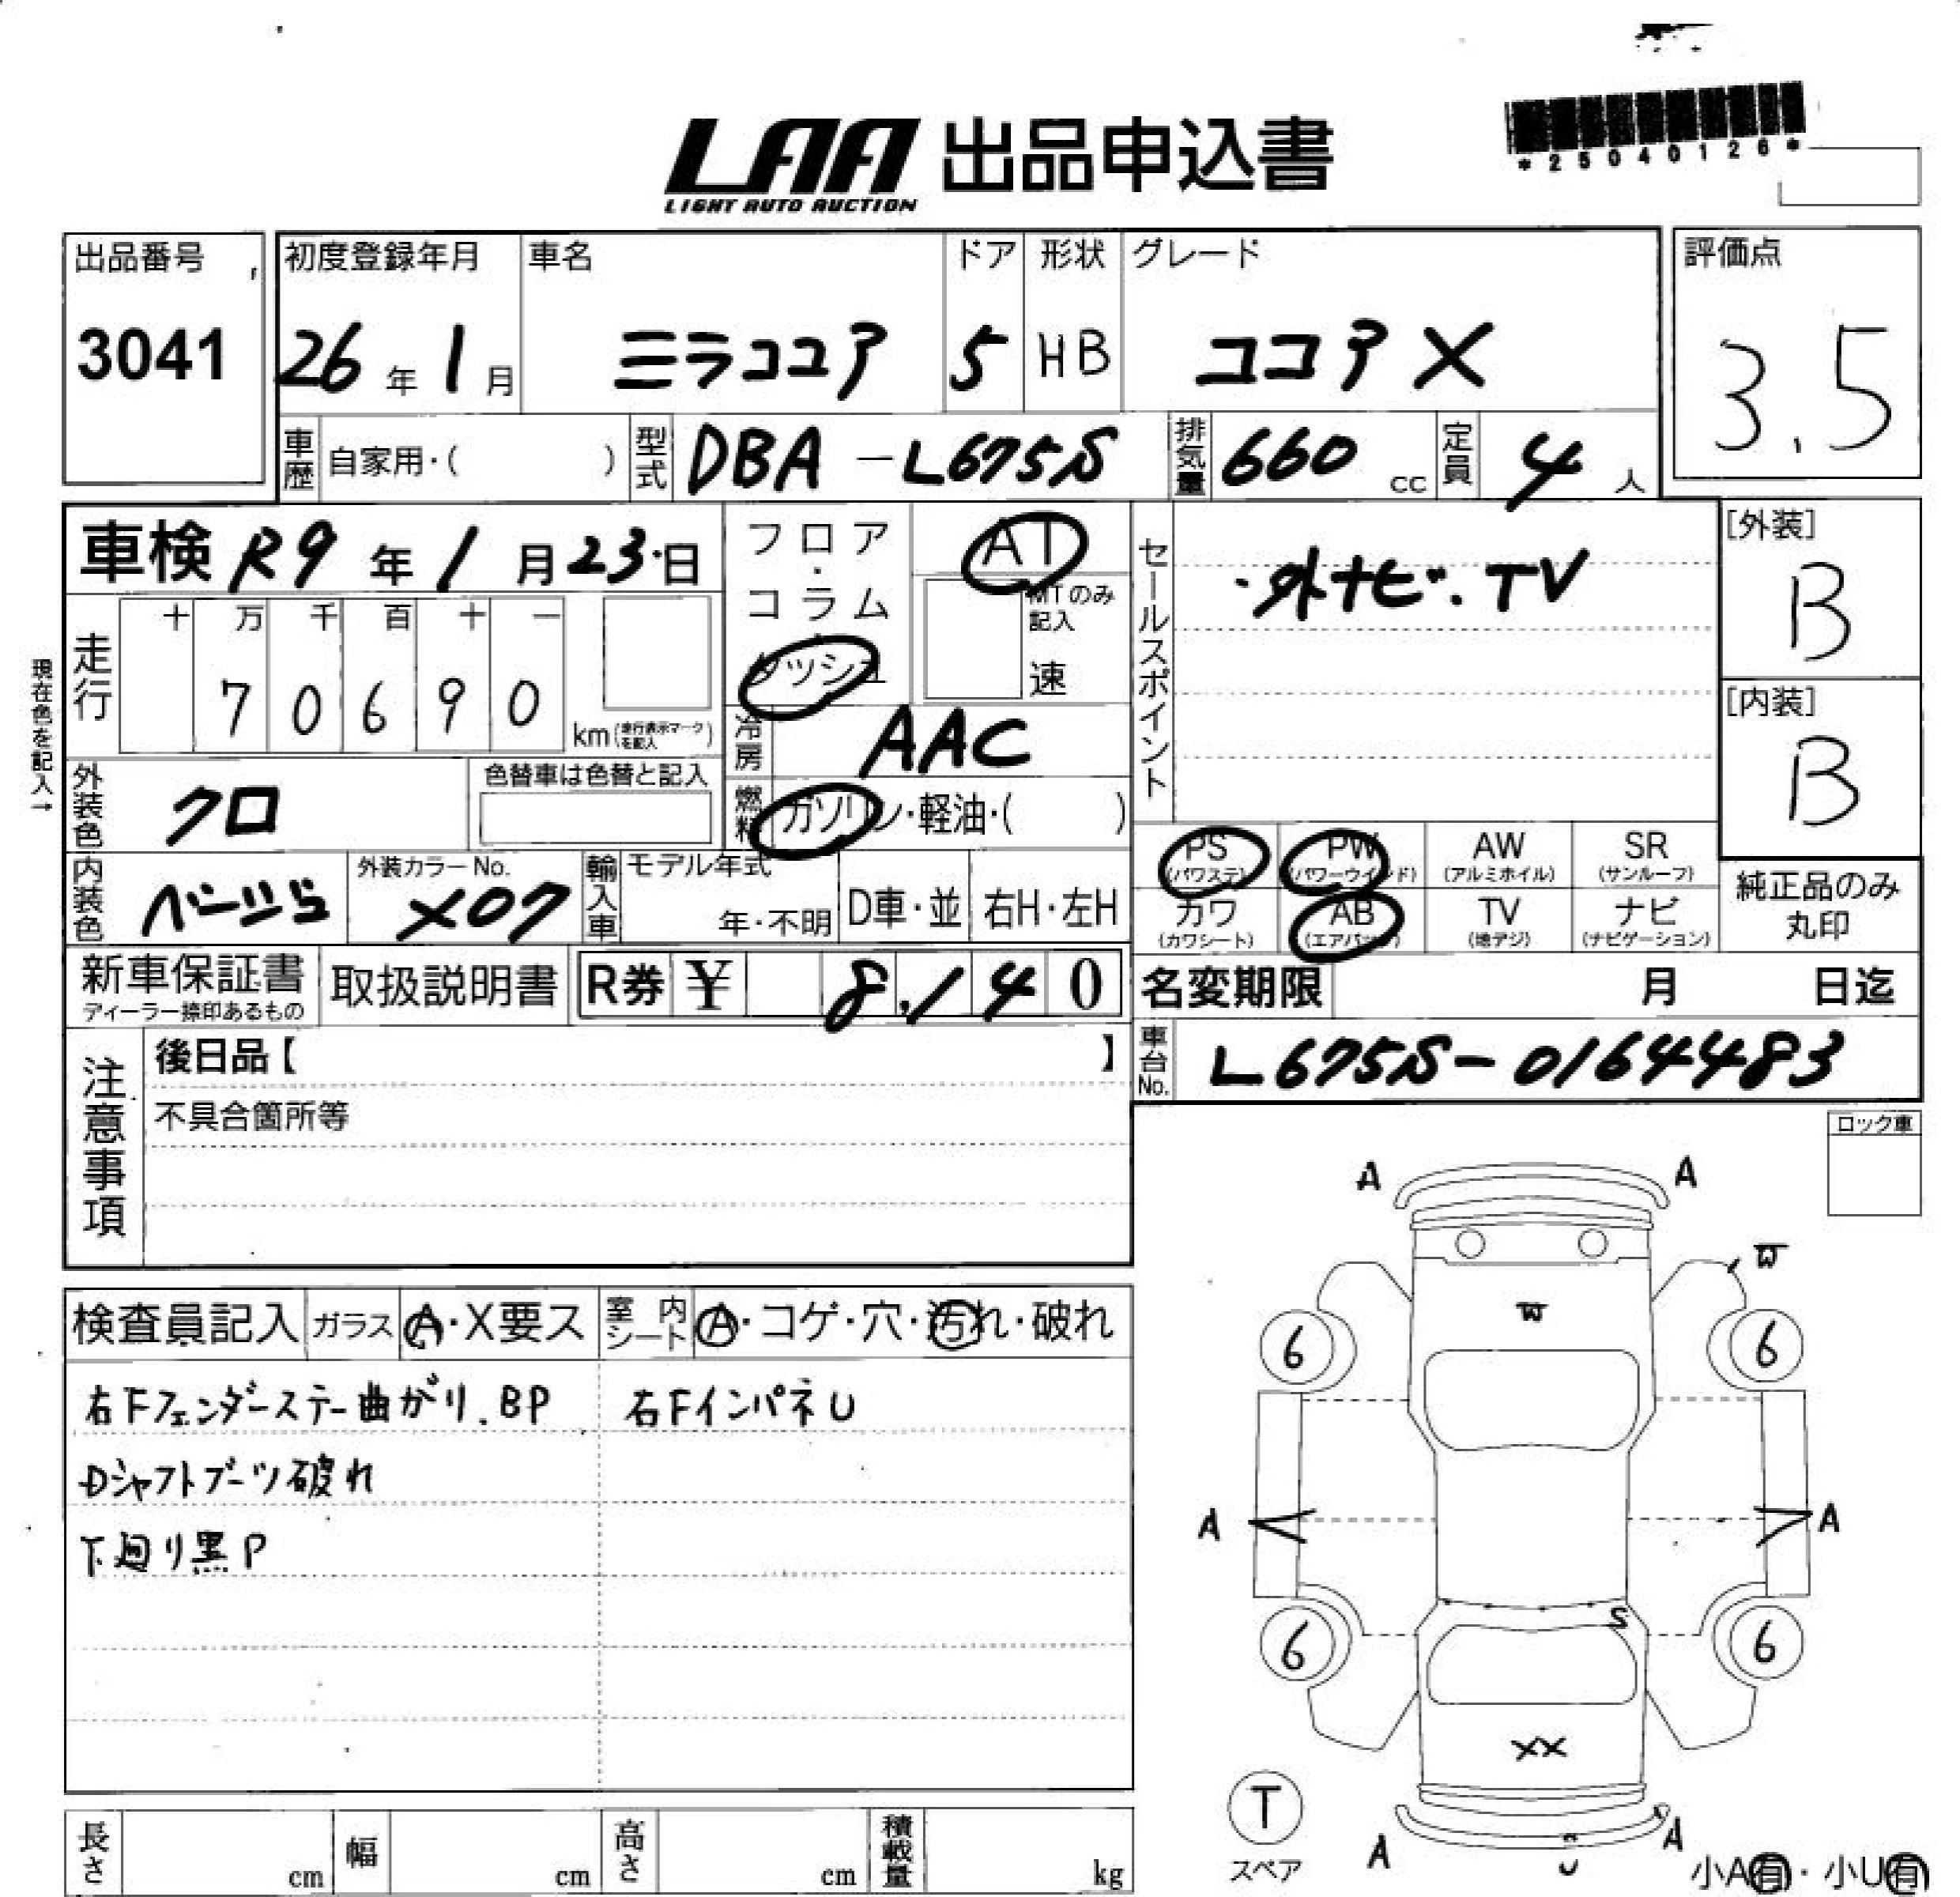 *25040126*
LAA 出品申込書
LIGHT AUTO AUCTION
出品番号
3041
初度登録年月
26年1月
車名
ミラココア
ドア
5
形状
HB
グレード
ココア X
評価点
3.5
車歴 自家用・( )
型式 DBA-L675S
排気量 660 cc
定員 4人
車検 R9年1月23日
現在色を記入→
走行
十 万 千 百 十 一
7 0 6 9 0
km(走行表示マークを記入)
フロア・コラム・ダッシュ
AT
MTのみ記入
速
冷房 AAC
燃料 ガソリン・軽油・( )
セールスポイント
・外ナビ.TV
[外装]
B
[内装]
B
外装色 クロ
色替車は色替と記入
内装色 ベージュ
外装カラーNo.
X07
輸入車
モデル年式
年・不明
D車・並
右H・左H
PS (パワステ)
PW (パワーウインド)
AW (アルミホイル)
SR (サンルーフ)
カワ (カワシート)
AB (エアバッグ)
TV (地デジ)
ナビ (ナビゲーション)
純正品のみ丸印
新車保証書
ディーラー捺印あるもの
取扱説明書
R券 ¥ 8,140
名変期限 月 日迄
車台No. L675S-0164483
注意事項
後日品【 】
不具合箇所等
ロック車
検査員記入
ガラス A・X要ス
室内シート A・コゲ・穴・汚れ・破れ
右Fフェンダーステー曲がり.BP
右FインパネU
Dシャフトブーツ破れ
下廻り黒P
A A
W
W
6 6
A A
S
6 6
XX
T
スペア
A U A
小A有・小U有
長さ cm
幅 cm
高さ cm
積載量 kg